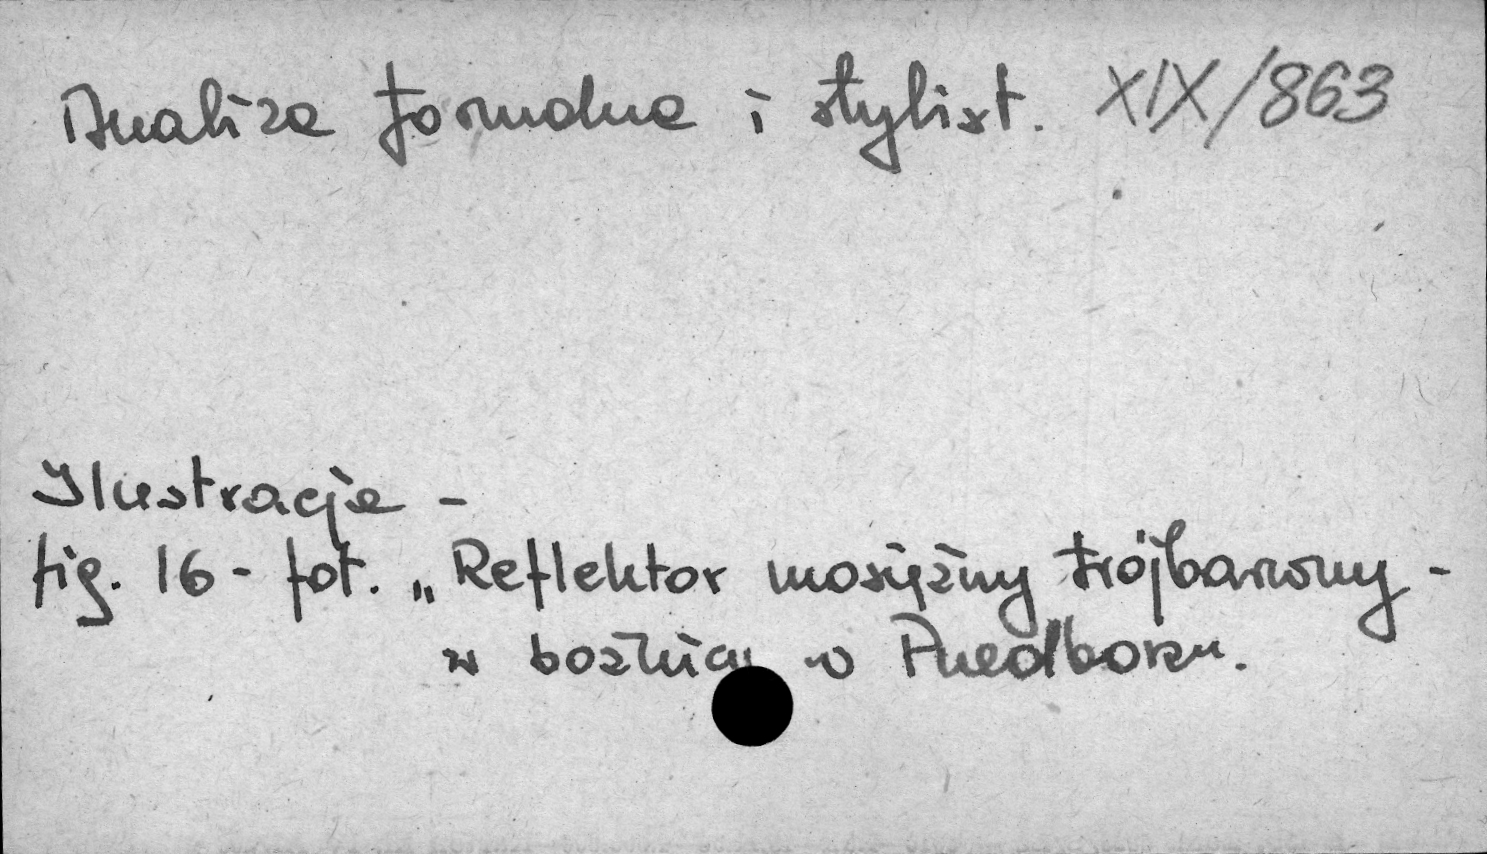 Analiza formalna i stylist. XIX/863
Ilustracje -
fig. 16 - fot. „Reflektor mosiężny trójbarwny -
w bożnicy w Przedborzu.